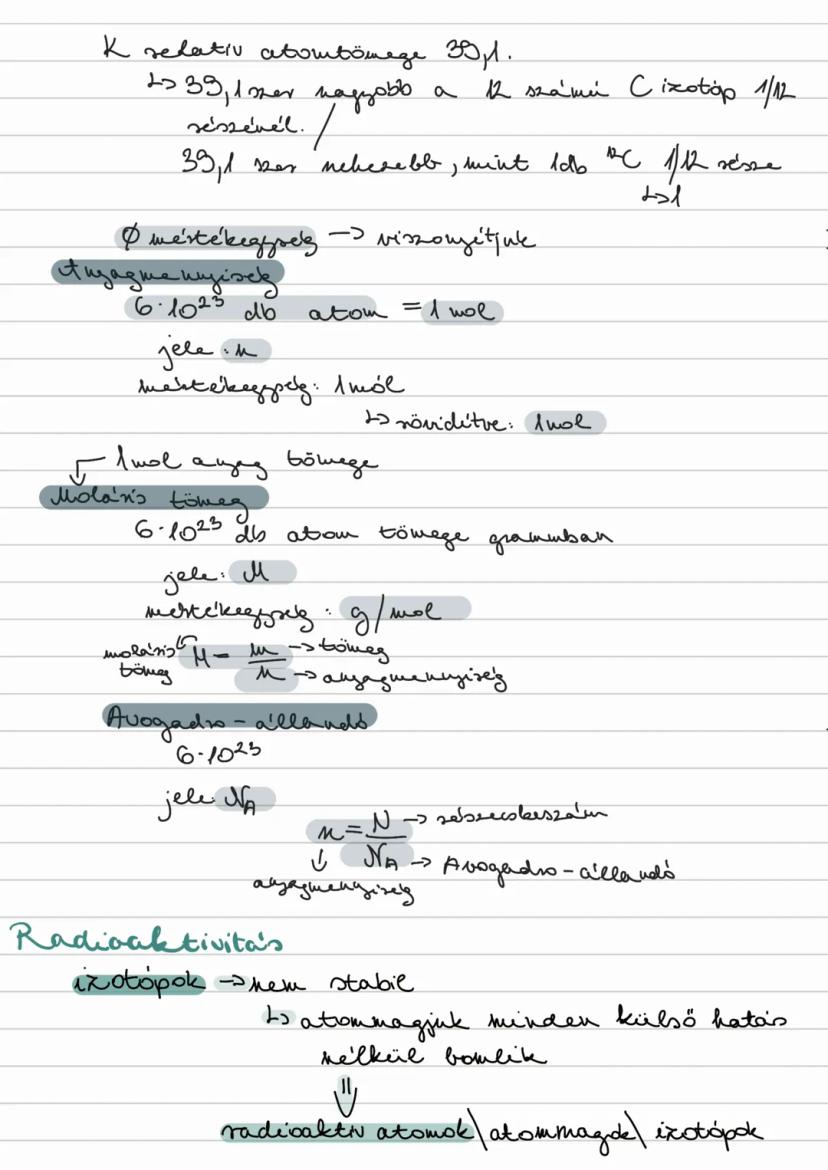 K relatív atomtömege 39,1.
↳ 39,1szer nagyobb a 12 számú C izotóp 1/12
részénél. /
39,1 szer nehezebb, mint 1db ¹²C 1/12 része
↳1
Ø mértékegység → viszonyítjuk
Anyagmennyiség
6·10²³ db atom = 1 mol
jele: n
mértékegység: 1mól
↳ rövidítve: 1mol
1mol anyag tömege
Moláris tömeg
6·10²³ db atom tömege grammban
jele: M
mértékegység: g/mol
moláris tömeg M = m/n → tömeg
→ anyagmennyiség
Avogadro-állandó
6·10²³
jele: N_A
n = N/N_A → részecskeszám
→ Avogadro-állandó
anyagmennyiség
Radioaktivitás
izotópok → nem stabil
↳ atommagjuk minden külső hatás
nélkül bomlik
⇓
radioaktív atomok\atommagok\ izotópok